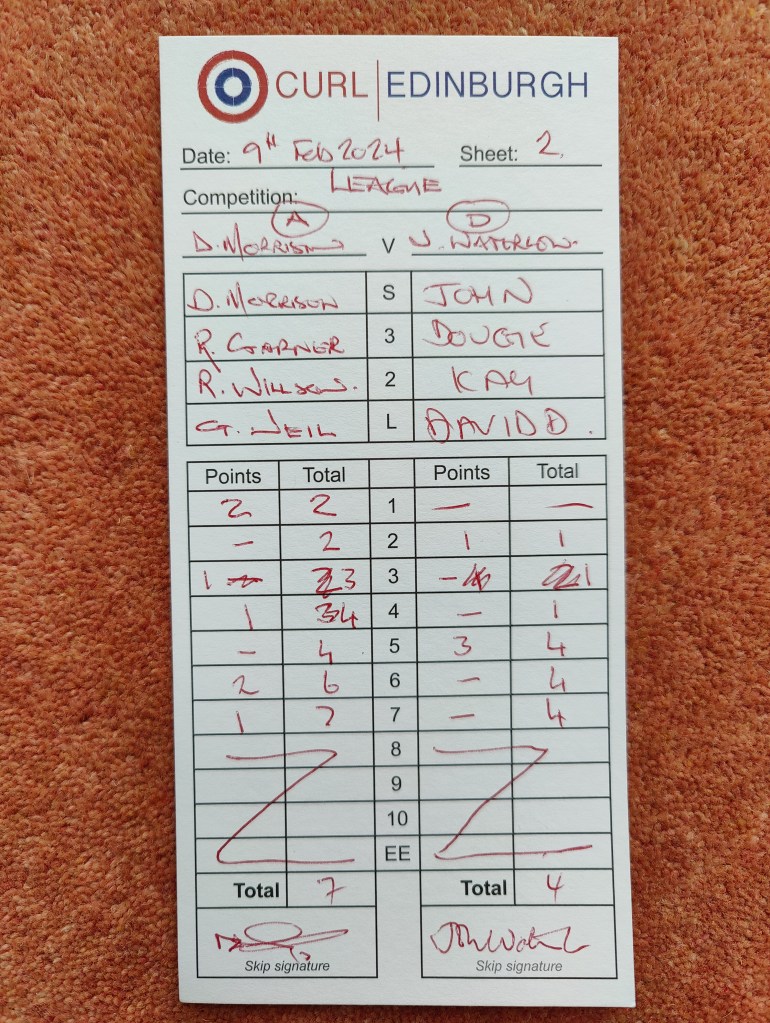 CURL | EDINBURGH
Date: 9th Feb 2024 Sheet: 2
Competition: LEAGUE
A D
D. MORRISON V J. WATERLOW
D. MORRISON S JOHN
R. GARNER 3 DOUGIE
R. WILLSON. 2 KAY
G. WEIL L DAVID D.
Points Total Points Total
2 2 1 — —
- 2 2 1 1
1 3 3 - 1
1 4 4 - 1
- 4 5 3 4
2 6 6 - 4
1 7 7 - 4
8
9
10
EE
Total 7 Total 4
Skip signature Skip signature